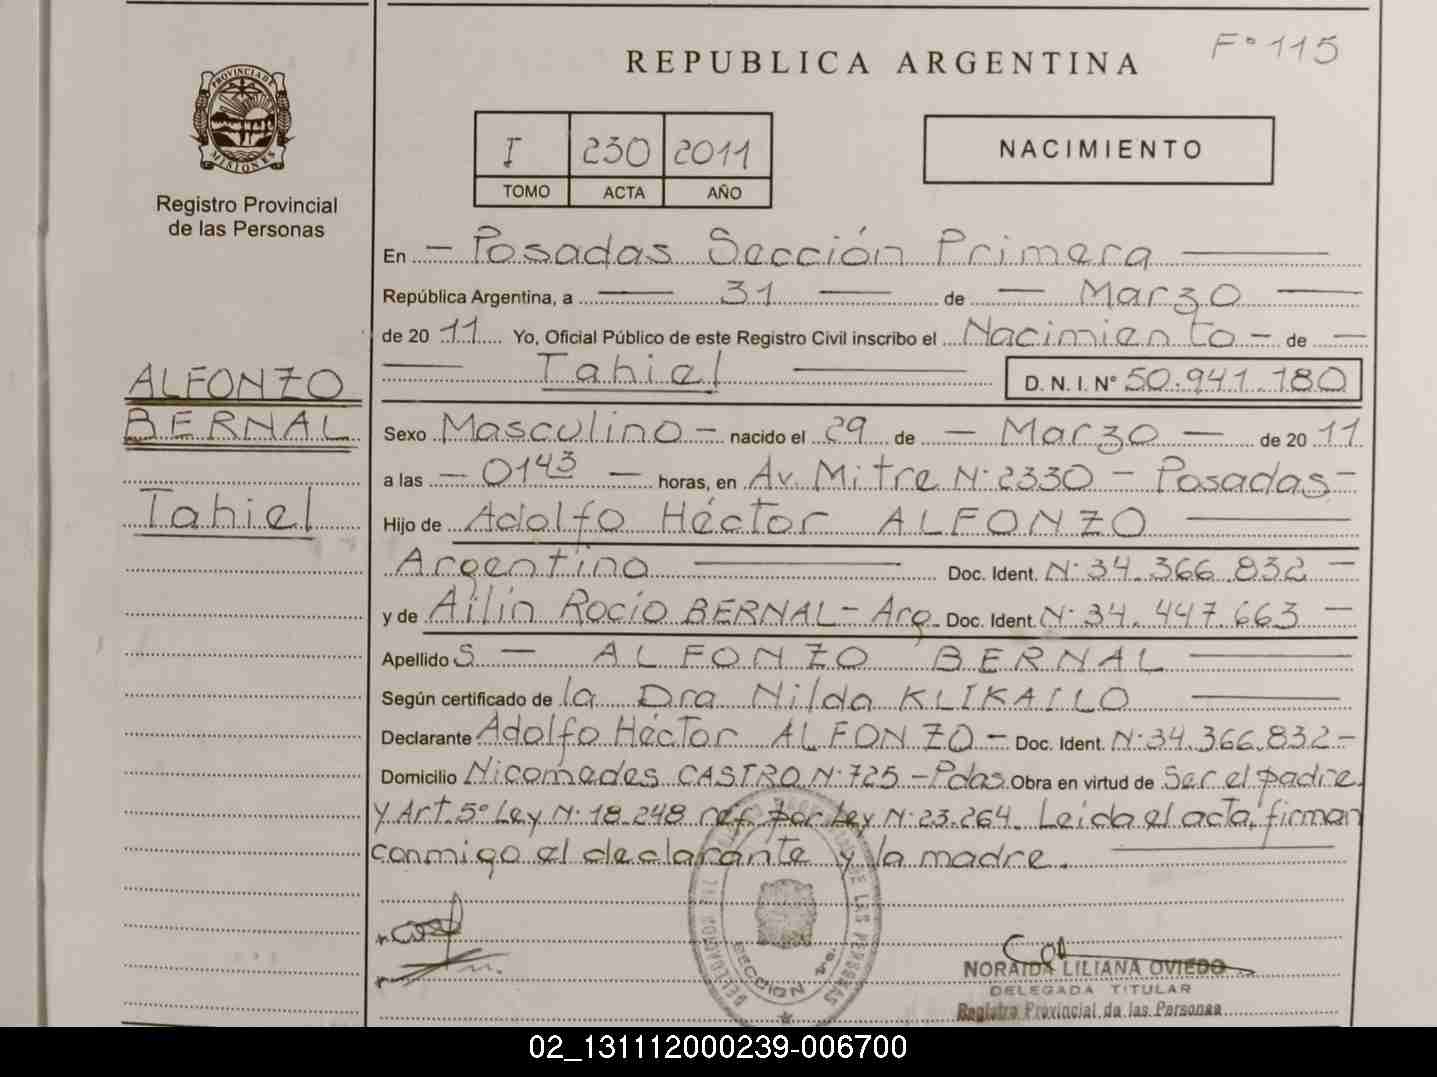 F° 115
REPUBLICA ARGENTINA
PROVINCIA DE MISIONES
Registro Provincial
de las Personas
I 230 2011
TOMO ACTA AÑO
NACIMIENTO
ALFONZO
BERNAL
Tahiel
En - Posadas Sección Primera
República Argentina, a 31 de - Marzo
de 2011 Yo, Oficial Público de este Registro Civil inscribo el Nacimiento - de -
Tahiel D. N. I. N° 50.941.180
Sexo Masculino - nacido el 29 de - Marzo - de 2011
a las - 0143 - horas, en Av. Mitre N° 2330 - Posadas -
Hijo de Adolfo Héctor ALFONZO
Argentino Doc. Ident. N° 34.366.832 -
y de Ailin Rocío BERNAL - Arg. Doc. Ident. N° 34.447.663 -
Apellido S - ALFONZO BERNAL
Según certificado de la Dra Nilda KLIKAILO
Declarante Adolfo Héctor ALFONZO - Doc. Ident. N° 34.366.832 -
Domicilio Nicomedes CASTRO N° 725 - Pdas. Obra en virtud de Ser el padre
y Art. 5° Ley N° 18.248 ref. por Ley N° 23.264. Leída el acta, firman
conmigo el declarante y la madre.
SECCION 1ra.
NORAIDA LILIANA OVIEDO
DELEGADA TITULAR
Registro Provincial de las Personas
02_131112000239-006700